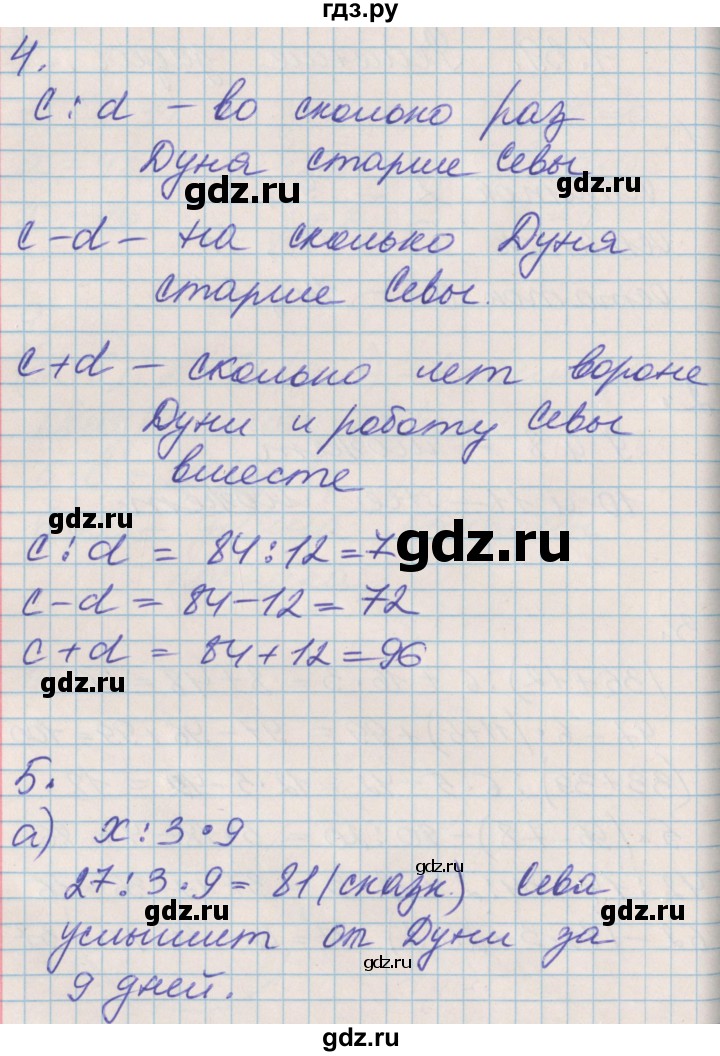 гдз.ру
4.
c : d – во сколько раз
Дуня старше Севы
gdz.ru
gdz.ru
c – d – на сколько Дуня
старше Севы.
c + d – сколько лет вороне
Дуни и роботу Севы
вместе
gdz.ru
c : d = 84 : 12 = 7
gdz.ru
c – d = 84 – 12 = 72
c + d = 84 + 12 = 96
gdz.ru
5.
а) x : 3 • 9
gdz.ru
27 : 3 • 9 = 81 (сказк.) Сева
gdz.ru
gdz.ru
услышит от Дуни за
gdz.ru
9 дней.
gdz.ru